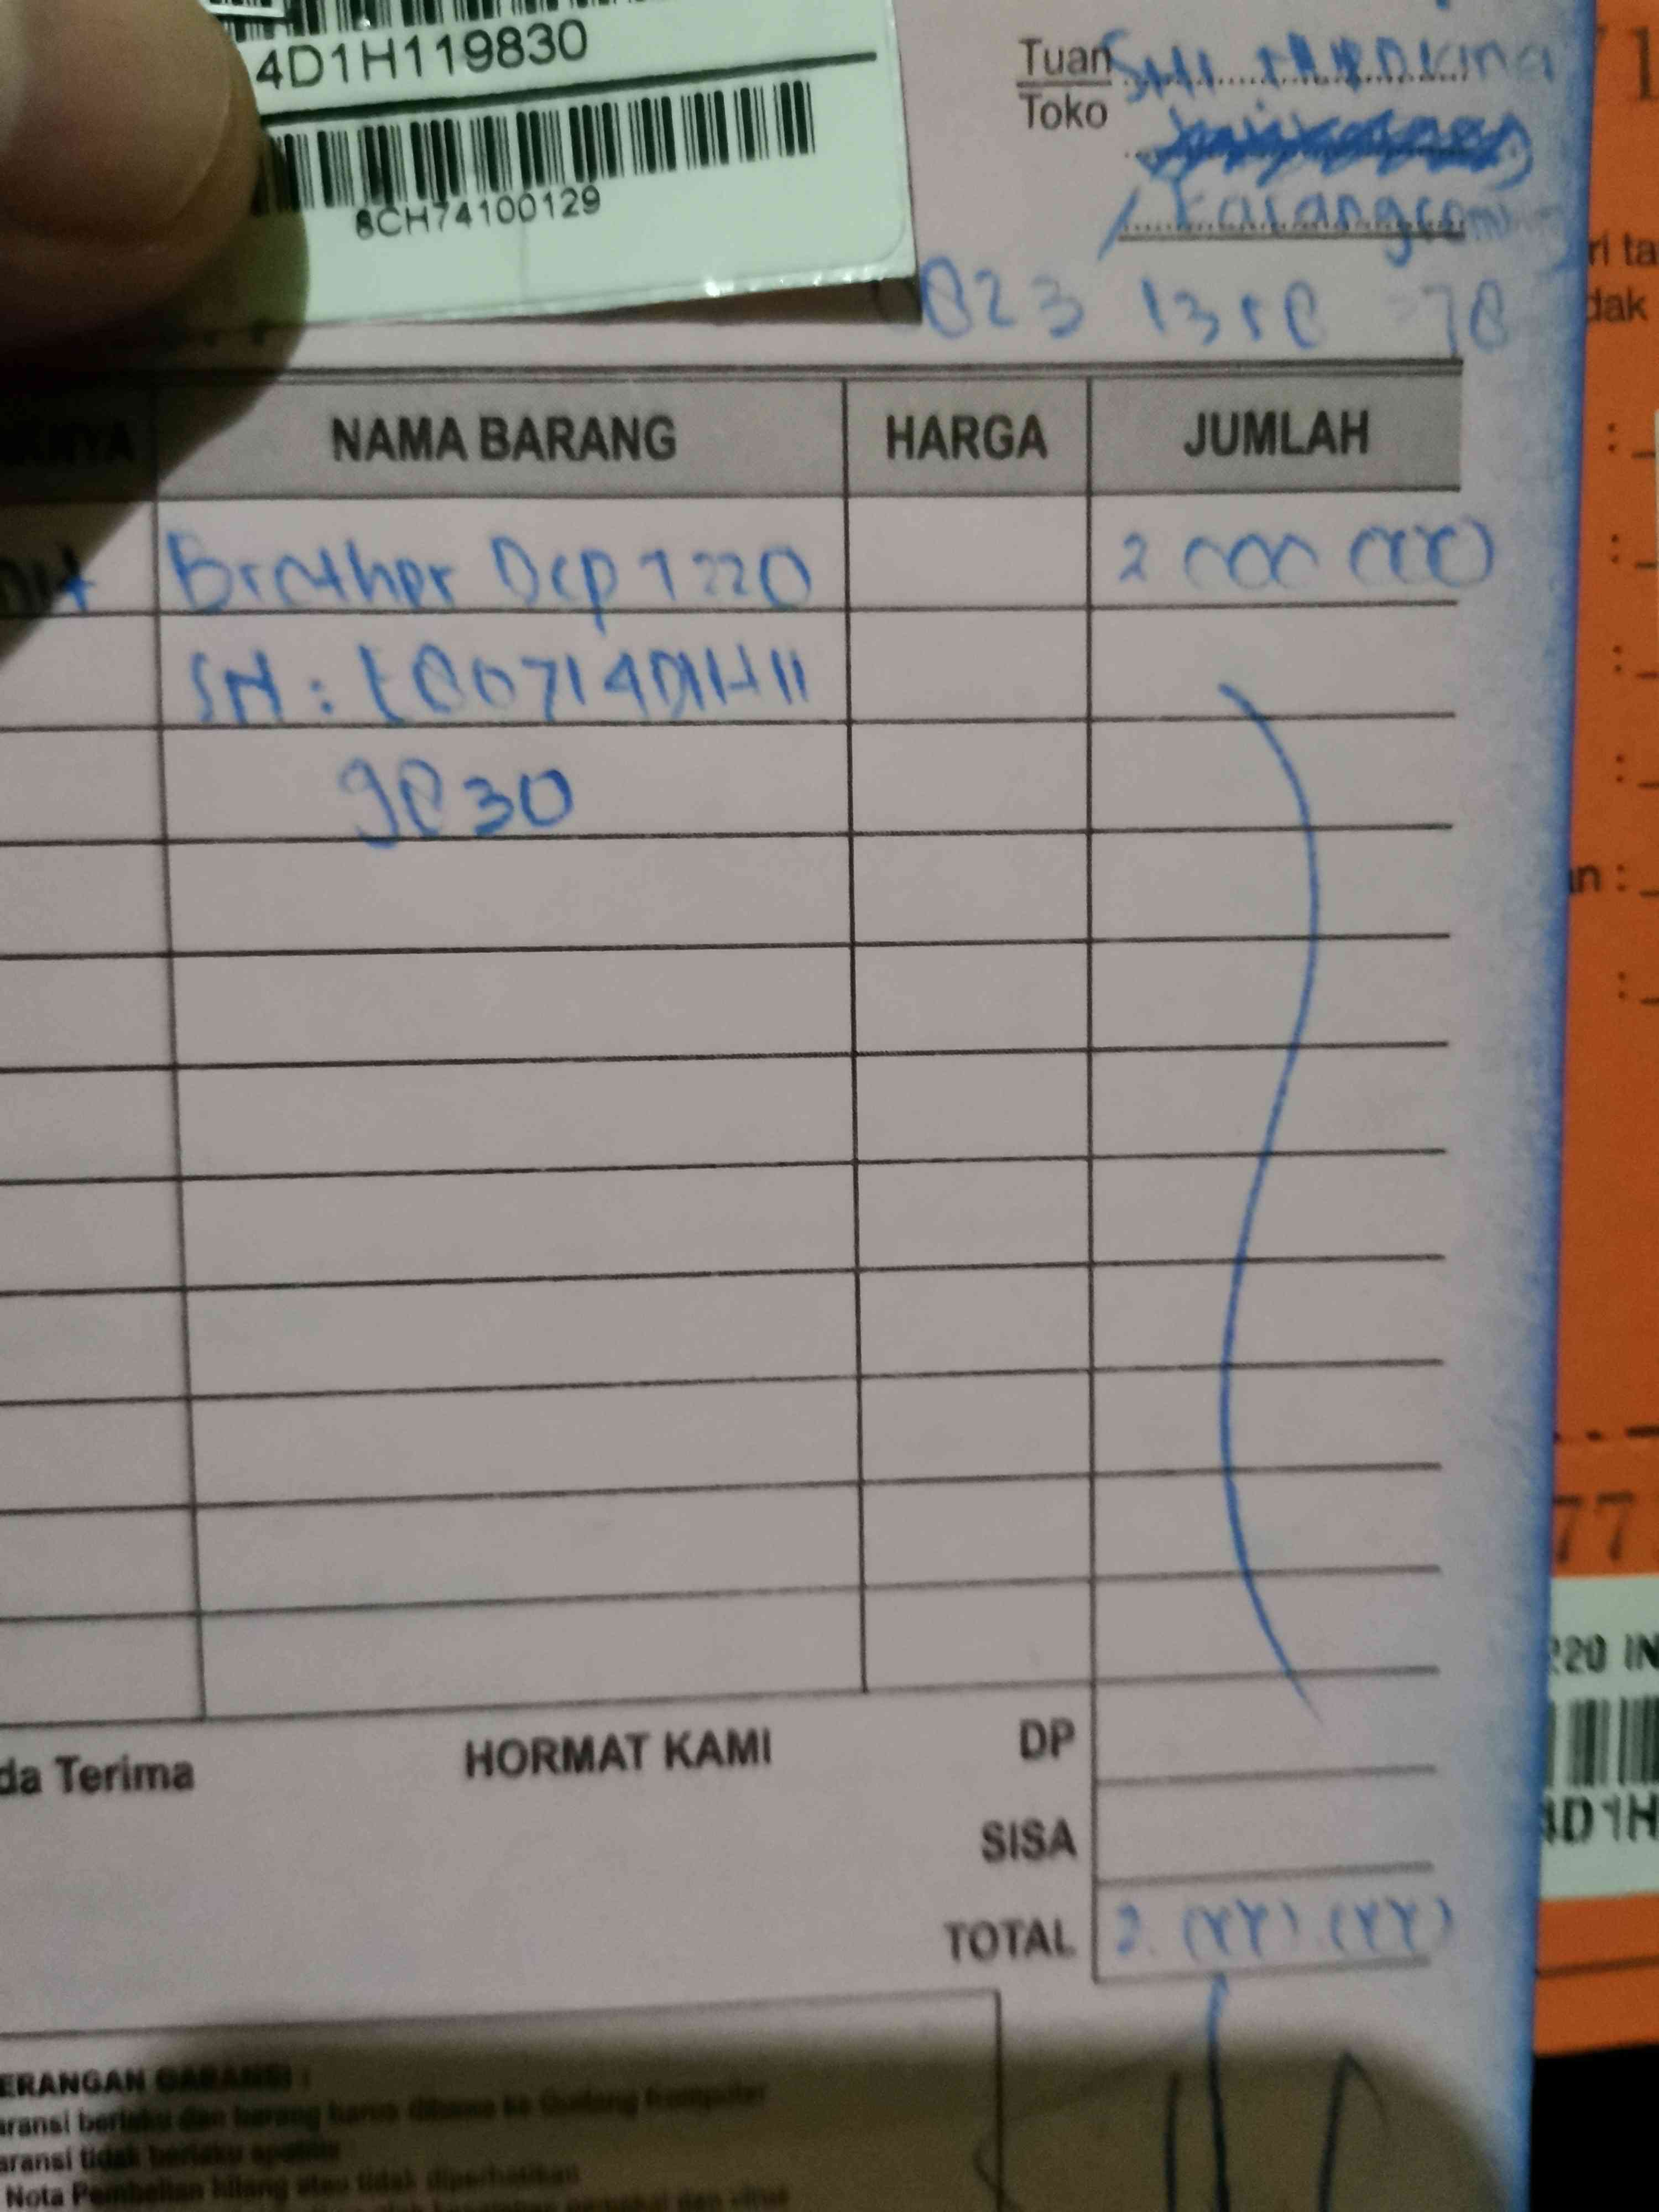 4D1H119830
8CH74100129
Tuan
Toko
Karangcom
0823 1358 78
NAMA BARANG HARGA JUMLAH
Brother Dcp 1220 2 000 000
SN : E80714D1H11
9830
da Terima HORMAT KAMI DP
SISA
TOTAL 2.000.000
ERANGAN GARANSI :
aransi berlaku dan barang harus dibawa ke Gudang Komputer
aransi tidak berlaku apabila
Nota Pembelian hilang atau tidak diperhatikan
ri ta
dak
n :
77
220 IN
4D1H